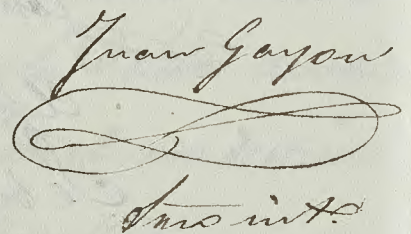 Juan Gayon
Srio int.